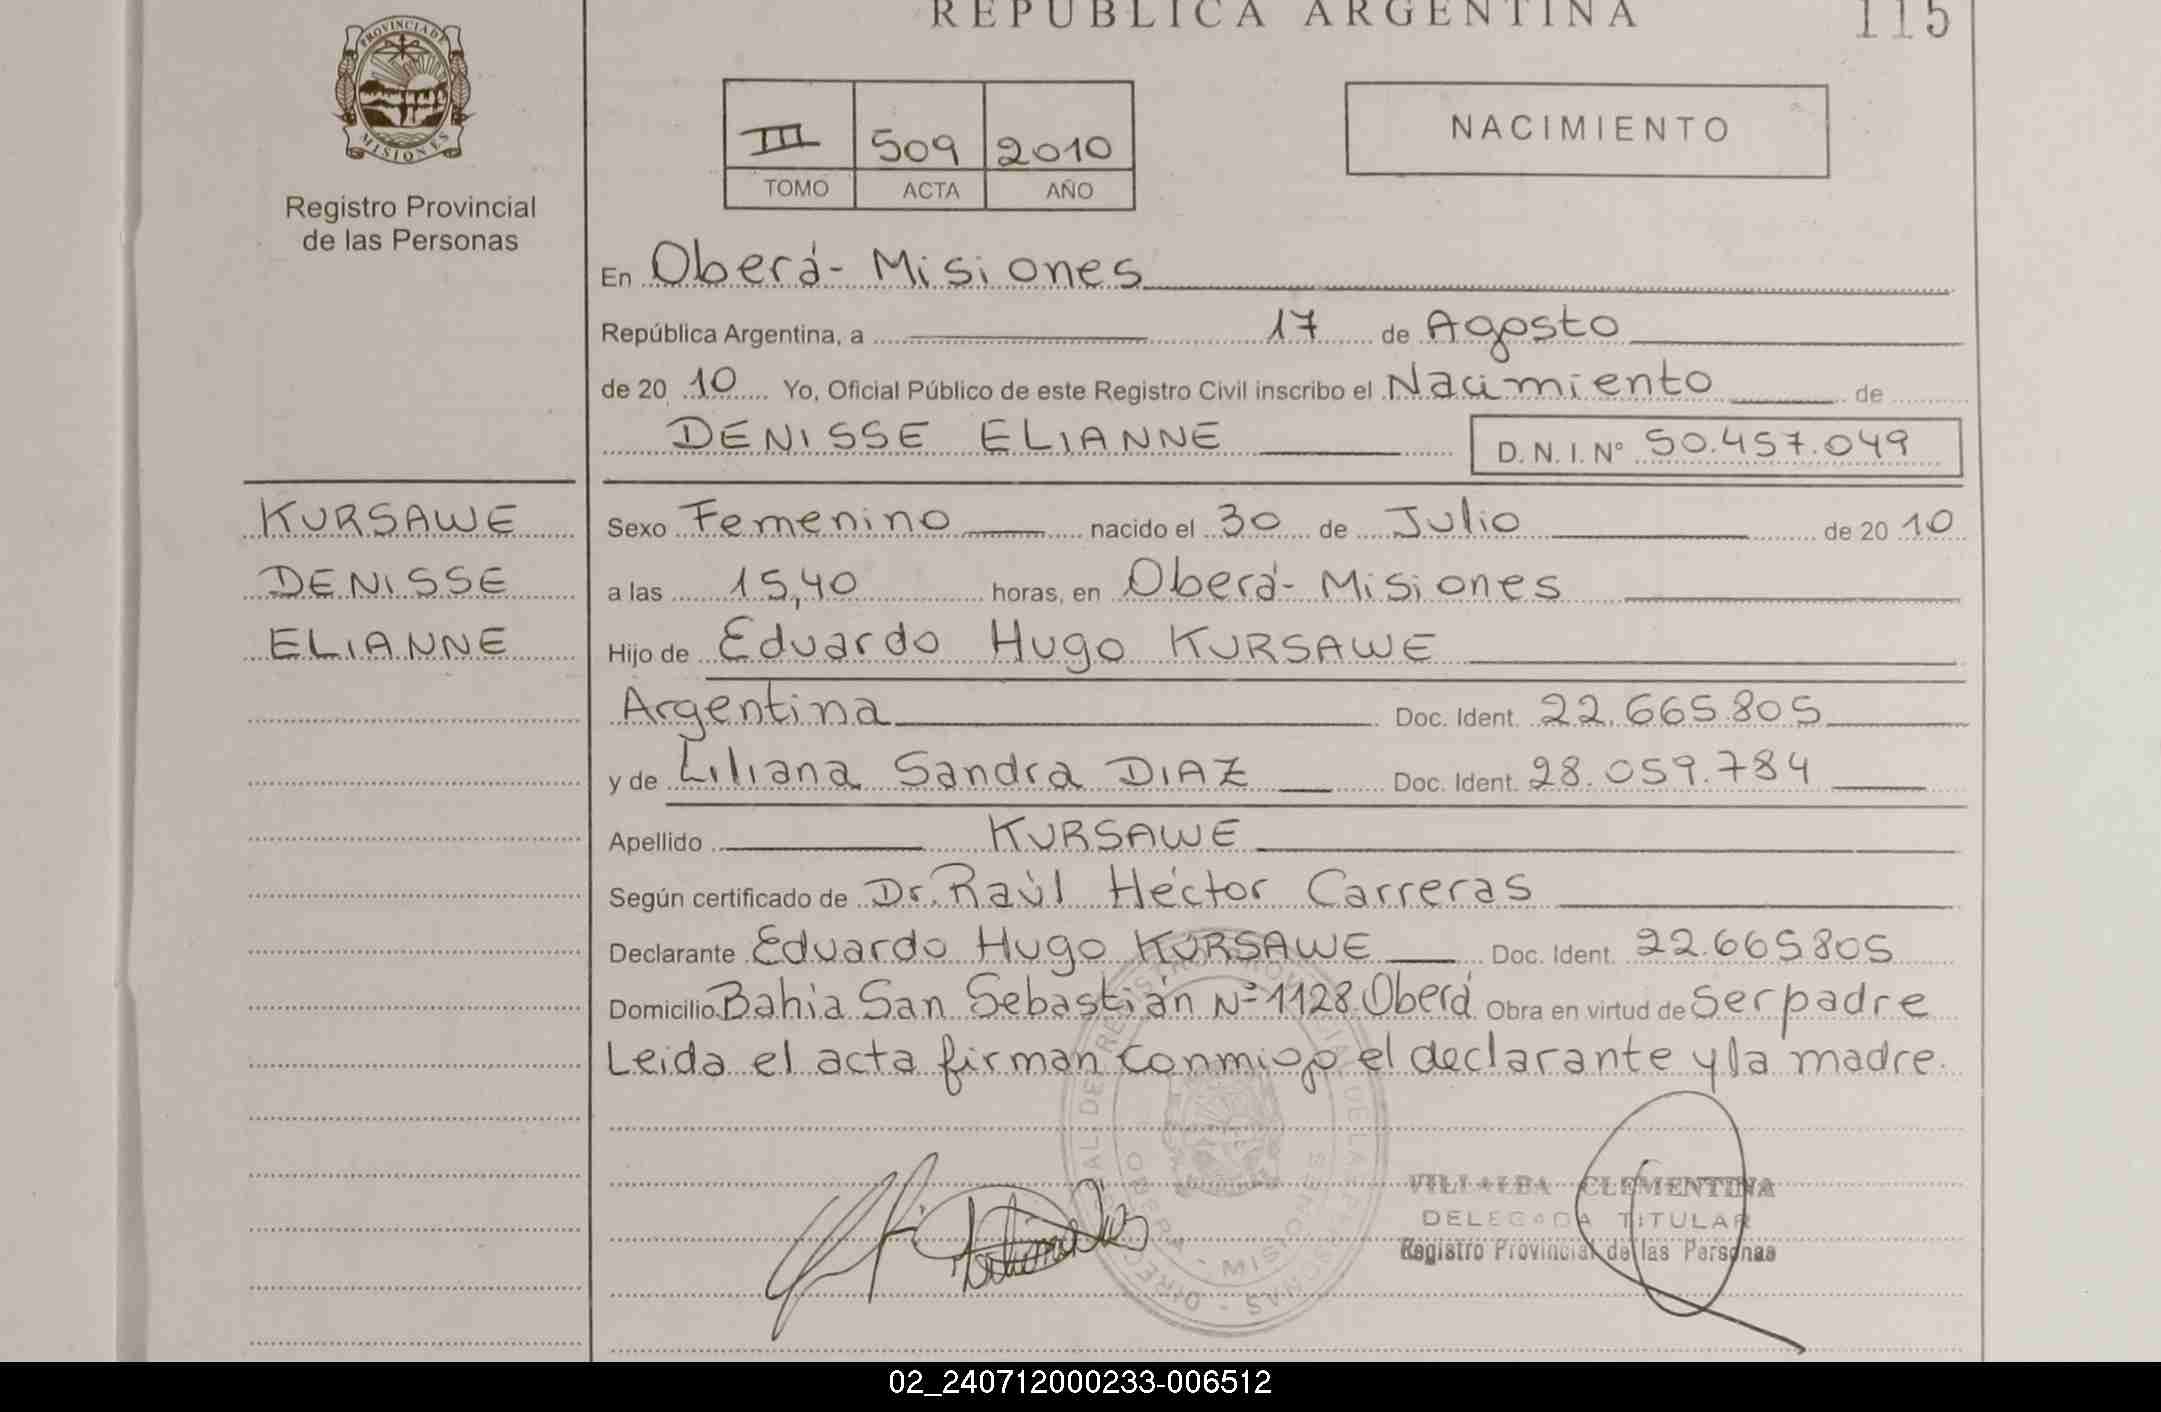 REPUBLICA ARGENTINA
115
PROVINCIA DE
MISIONES
Registro Provincial
de las Personas
III 509 2010
TOMO ACTA AÑO
NACIMIENTO
En Oberá- Misiones
República Argentina, a 17 de Agosto
de 20 10 Yo, Oficial Público de este Registro Civil inscribo el Nacimiento de
DENISSE ELIANNE D. N. I. Nº 50.457.049
KURSAWE
DENISSE
ELIANNE
Sexo Femenino nacido el 30 de Julio de 20 10
a las 15,40 horas, en Oberá- Misiones
Hijo de Eduardo Hugo KURSAWE
Argentina Doc. Ident. 22.665.805
y de Liliana Sandra DIAZ Doc. Ident. 28.059.784
Apellido KURSAWE
Según certificado de Dr. Raúl Héctor Carreras
Declarante Eduardo Hugo KURSAWE Doc. Ident. 22.665805
Domicilio Bahia San Sebastián Nº 1128 Oberá Obra en virtud de Ser padre
Leida el acta firman conmigo el declarante y la madre.
VILLALBA CLEMENTINA
DELEGADA TITULAR
Registro Provincial de las Personas
OBERA - MISIONES
02_240712000233-006512